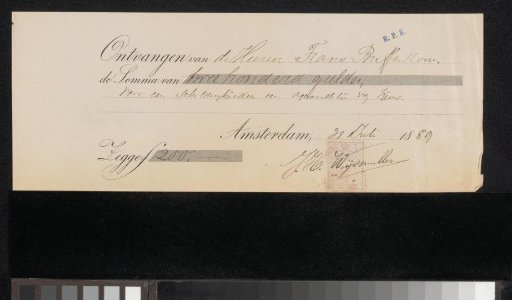 R.P.K.
Ontvangen van de Heeren Frans Buffa & Zonen
de Somma van twee honderd gulden,
voor een schilderij en een aquarel
Amsterdam, 31 Juli 1889
Zegge f 200.—
Wijsmuller